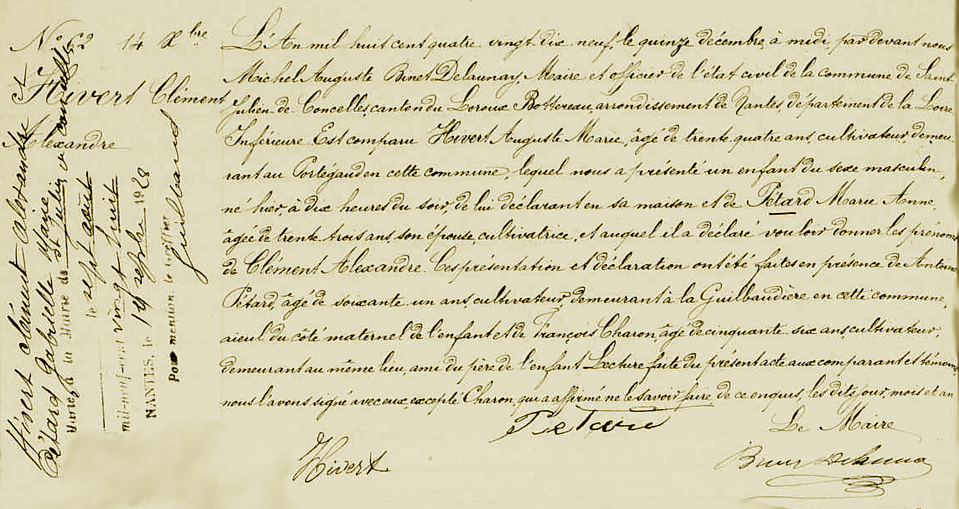 No 62 14 Xbre
Hivert Clément
Alexandre
Hivert Clément Alexandre et
Pétard Gabrielle Marie
Mairie de St Julien de Concelles
le sept août
mil neuf cent vingt huit
NANTES, le 19 1928
Pour mention, le greffier
Guilbaud
L'An mil huit cent quatre vingt dix neuf, le quinze décembre, à midi, par devant nous
Michel Auguste Binet Delaunay, Maire et officier de l'état civil de la commune de Saint
Julien de Concelles, canton du Loroux Bottereau, arrondissement de Nantes, département de la Loire
Inférieure Est comparu Hivert Auguste Marie, âgé de trente quatre ans, cultivateur, demeu
rant au Portégaud en cette commune, lequel nous a présenté un enfant du sexe masculin,
né hier, à dix heures du soir, de lui déclarant en sa maison et de Pétard Marie Anne,
âgée de trente trois ans, son épouse, cultivatrice, et auquel il a déclaré vouloir donner les prénoms
de Clément Alexandre. Ces présentation et déclaration ont été faites en présence de Antoine
Pétard, âgé de soixante un ans cultivateur demeurant à la Guilbaudière en cette commune,
aieul du côté maternel de l'enfant et de François Charon, âgé de cinquante six ans, cultivateur,
demeurant au même lieu, ami du père de l'enfant Lecture faite du présent acte aux comparant et témoins,
nous l'avons signé avec eux excepté Charon, qui a affirmé ne le savoir faire de ce enquis, les dits jour, mois et an
Le Maire
Hivert